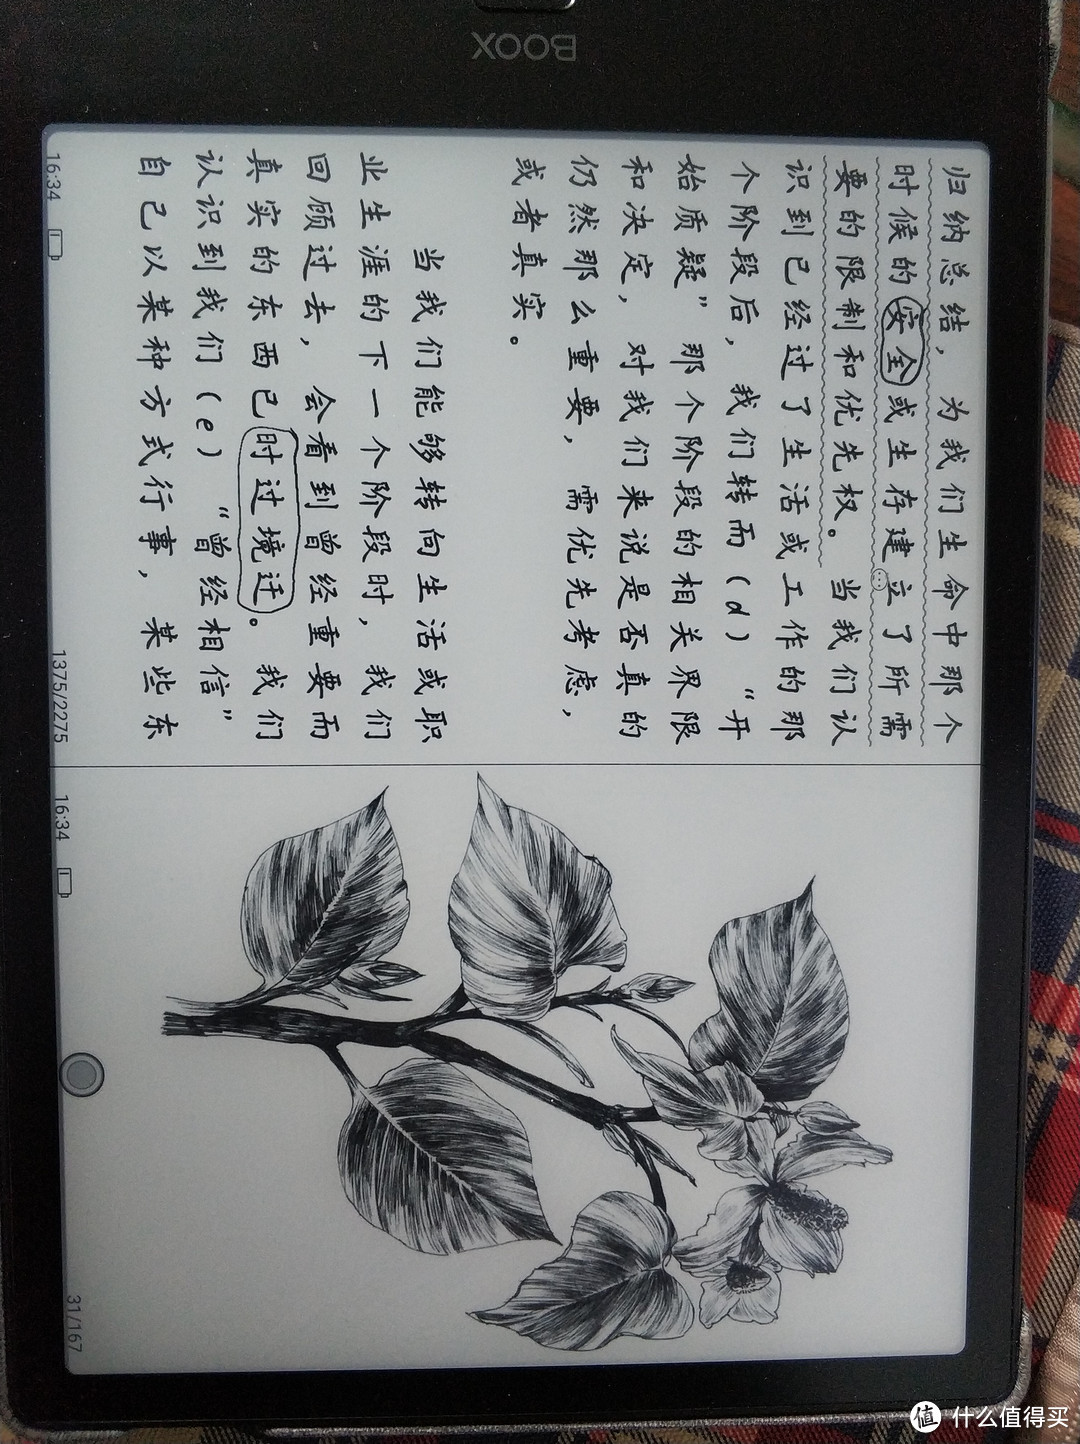 归纳总结，为我们生命中那个
时候的安全或生存建立了所需
要的限制和优先权。当我们认
识到已经过了生活或工作的那
个阶段后，我们转而（d）“开
始质疑”那个阶段的相关界限
和决定，对我们来说是否真的
仍然那么重要，需优先考虑，
或者真实。
当我们能够转向生活或职
业生涯的下一个阶段时，我们
回顾过去，会看到曾经重要而
真实的东西已时过境迁。我们
认识到我们（e）“曾经相信”
自己以某种方式行事，某些东
16:34
1375/2275
16:34
31/167
BOOX
值 什么值得买